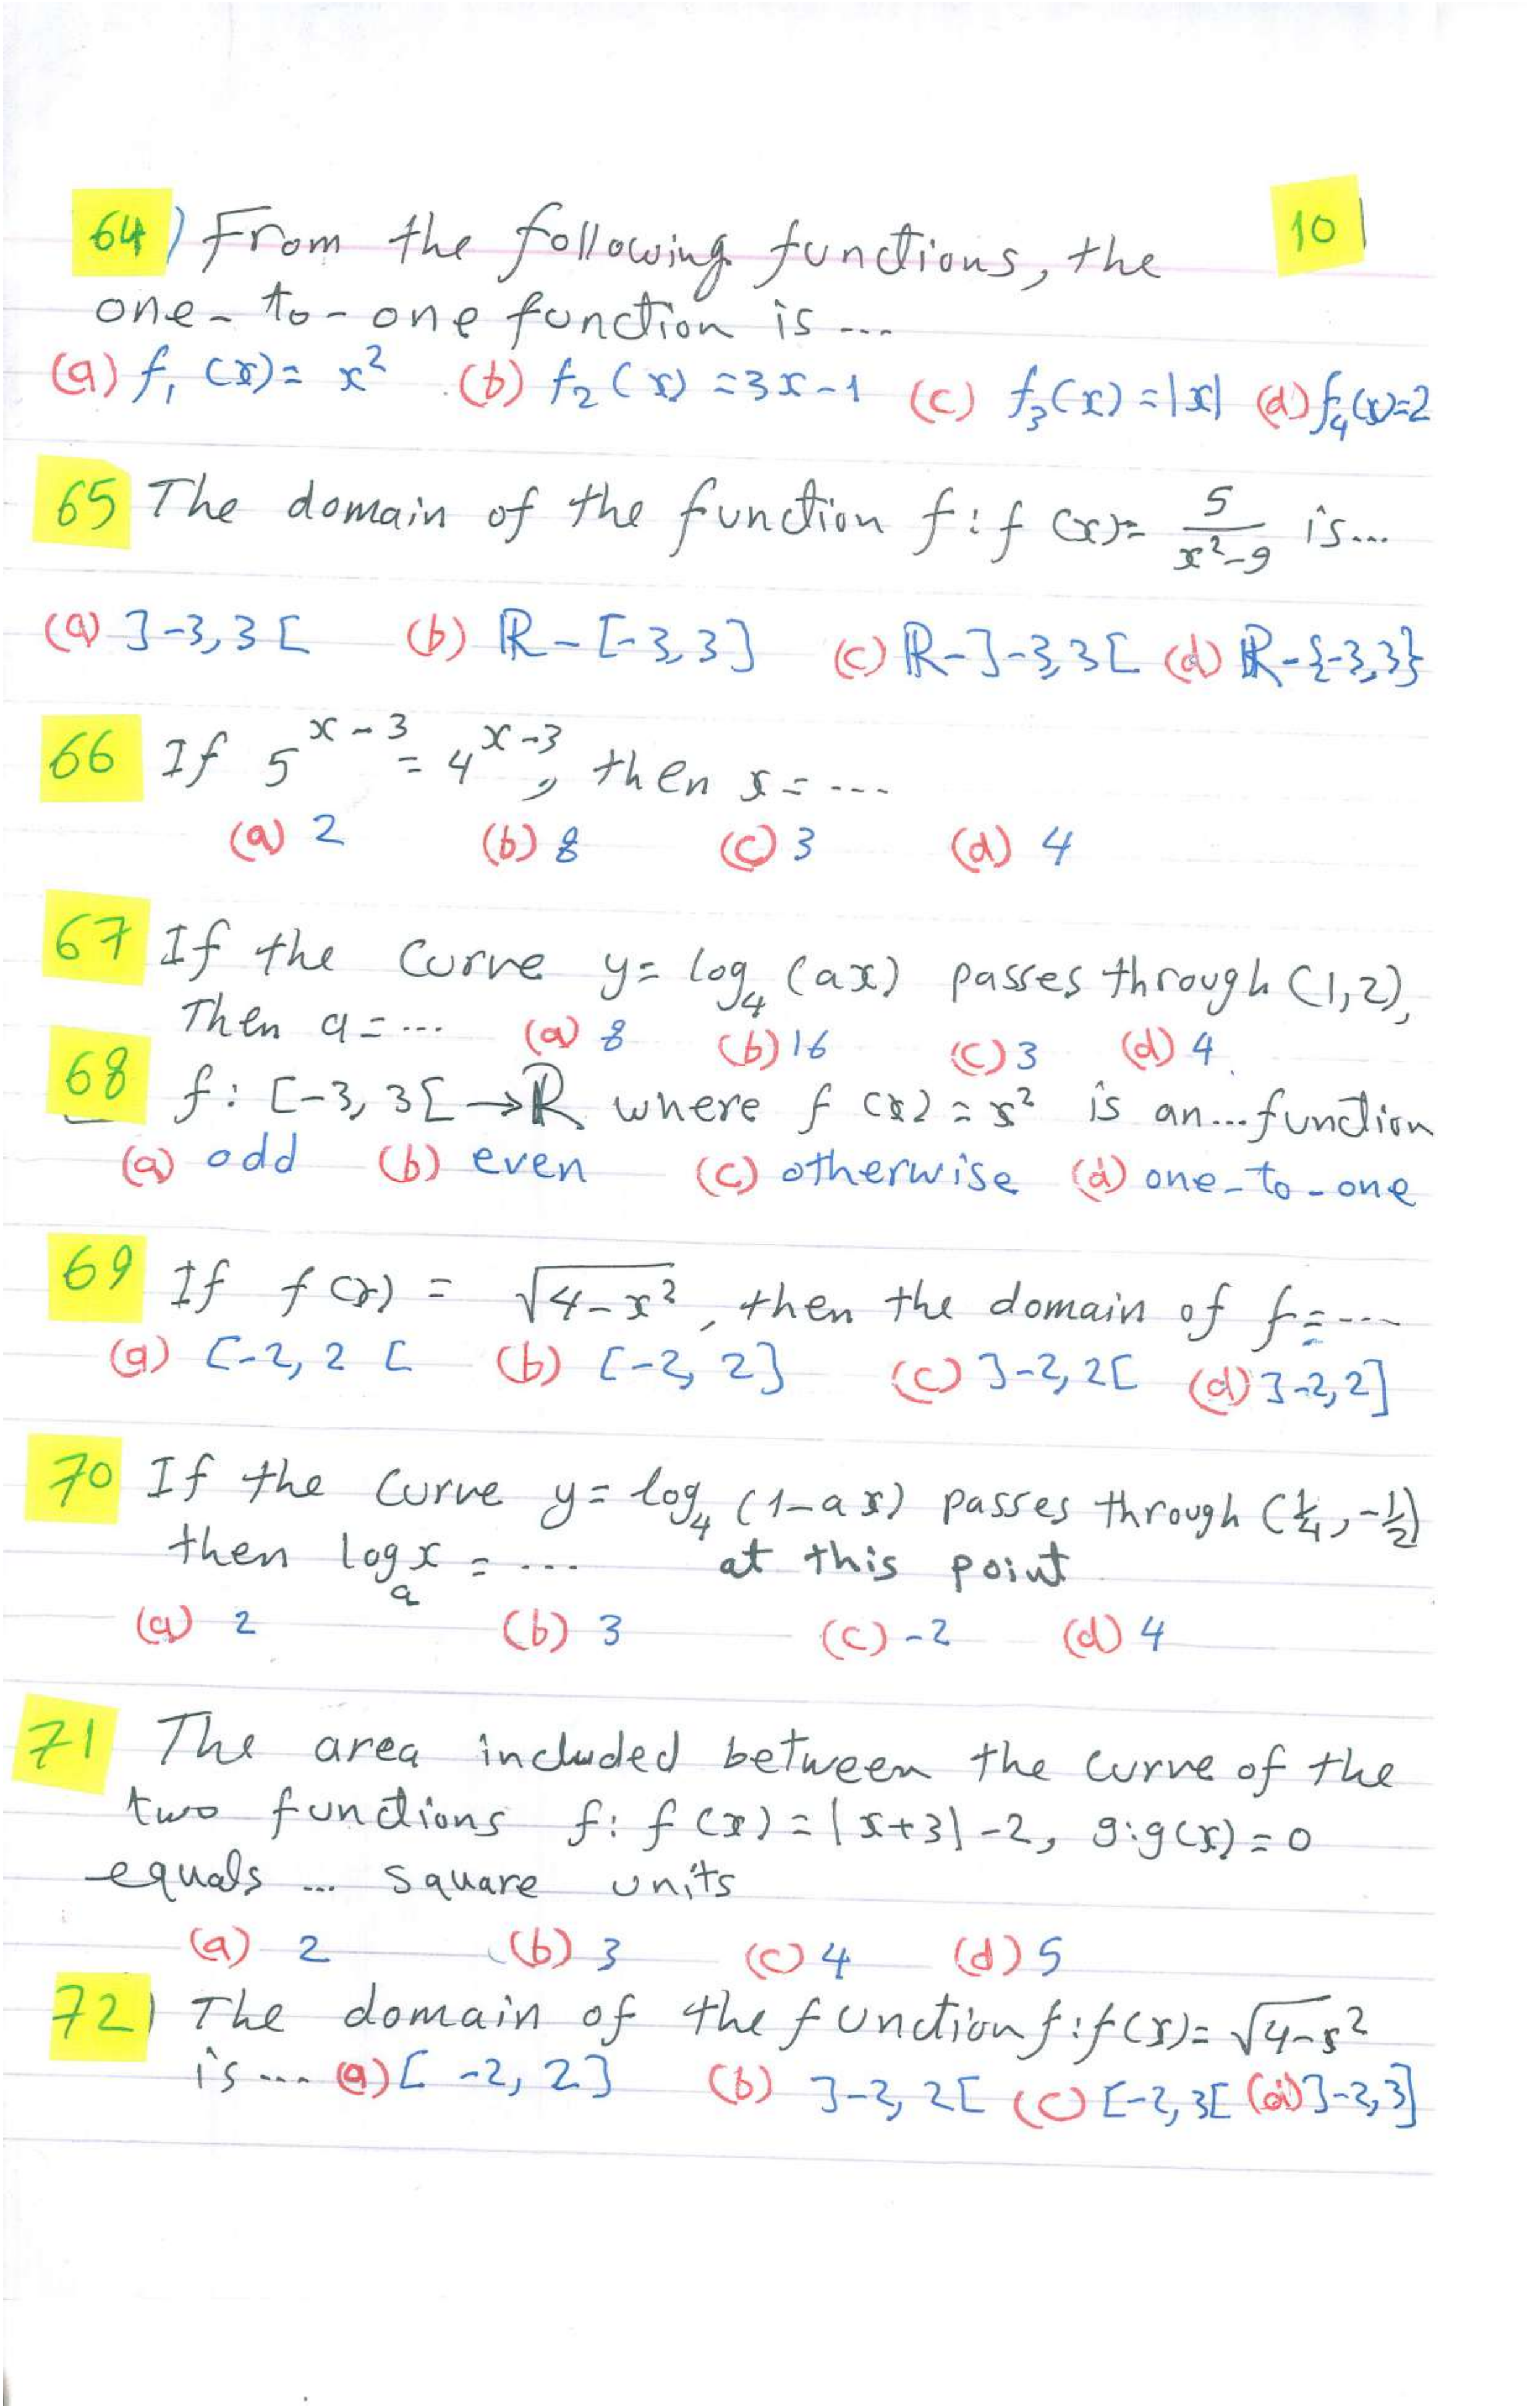 64) From the following functions, the
10
one-to-one function is ...
(a) f₁(x)= x² (b) f₂(x)=3x-1 (c) f₃(x)=|x| (d) f₄(x)=2
65 The domain of the function f:f(x)= 5/(x²-9) is...
(a) ]-3,3[ (b) ℝ-[-3,3] (c) ℝ-]-3,3[ (d) ℝ-{-3,3}
66 If 5^(x-3) = 4^(x-3), then x = ...
(a) 2 (b) 8 (c) 3 (d) 4
67 If the curve y= log₄(ax) passes through (1,2),
Then a = ... (a) 8 (b) 16 (c) 3 (d) 4
68 f: [-3,3[ → ℝ where f(x) = x² is an... function
(a) odd (b) even (c) otherwise (d) one-to-one
69 If f(x) = √(4-x²), then the domain of f = ...
(a) [-2,2[ (b) [-2,2] (c) ]-2,2[ (d) ]-2,2]
70 If the curve y= log₄(1-ax) passes through (1/4, -1/2)
then logₐx = ... at this point
(a) 2 (b) 3 (c) -2 (d) 4
71 The area included between the curve of the
two functions f: f(x)=|x+3|-2, g:g(x)=0
equals ... square units
(a) 2 (b) 3 (c) 4 (d) 5
72) The domain of the function f:f(x)= √(4-x²)
is ... (a) [-2,2] (b) ]-2,2[ (c) [-2,3[ (d) ]-2,3]